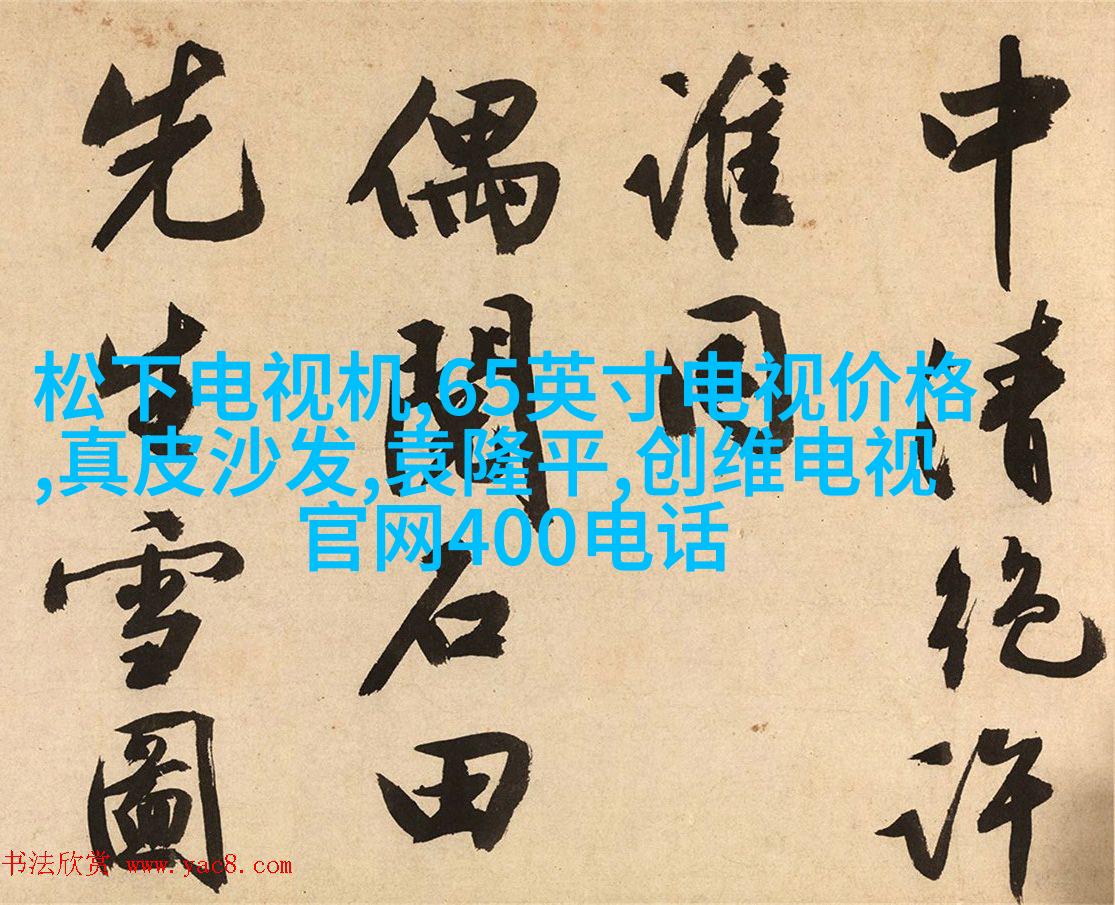 中清絕許
誰同
偶閱石田
先生雪圖
松下电视机,65英寸电视价格
,真皮沙发,袁隆平,创维电视
官网400电话
书法欣赏 www.yac8.com